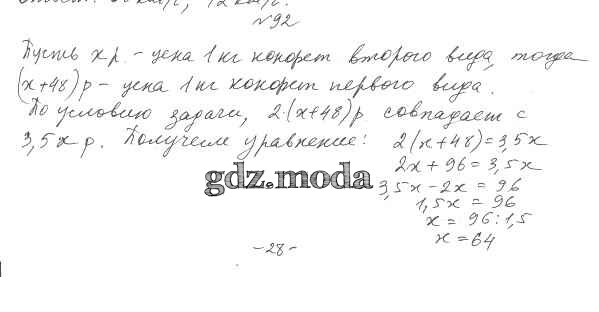 №92
Пусть x р. – цена 1 кг конфет второго вида, тогда
(x+48) р – цена 1 кг конфет первого вида.
По условию задачи, 2·(x+48) р совпадает с
3,5x р. Получаем уравнение: 2(x+48)=3,5x
2x + 96 = 3,5x
gdz.moda
3,5x – 2x = 96
1,5x = 96
x = 96 : 1,5
x = 64
– 28 –